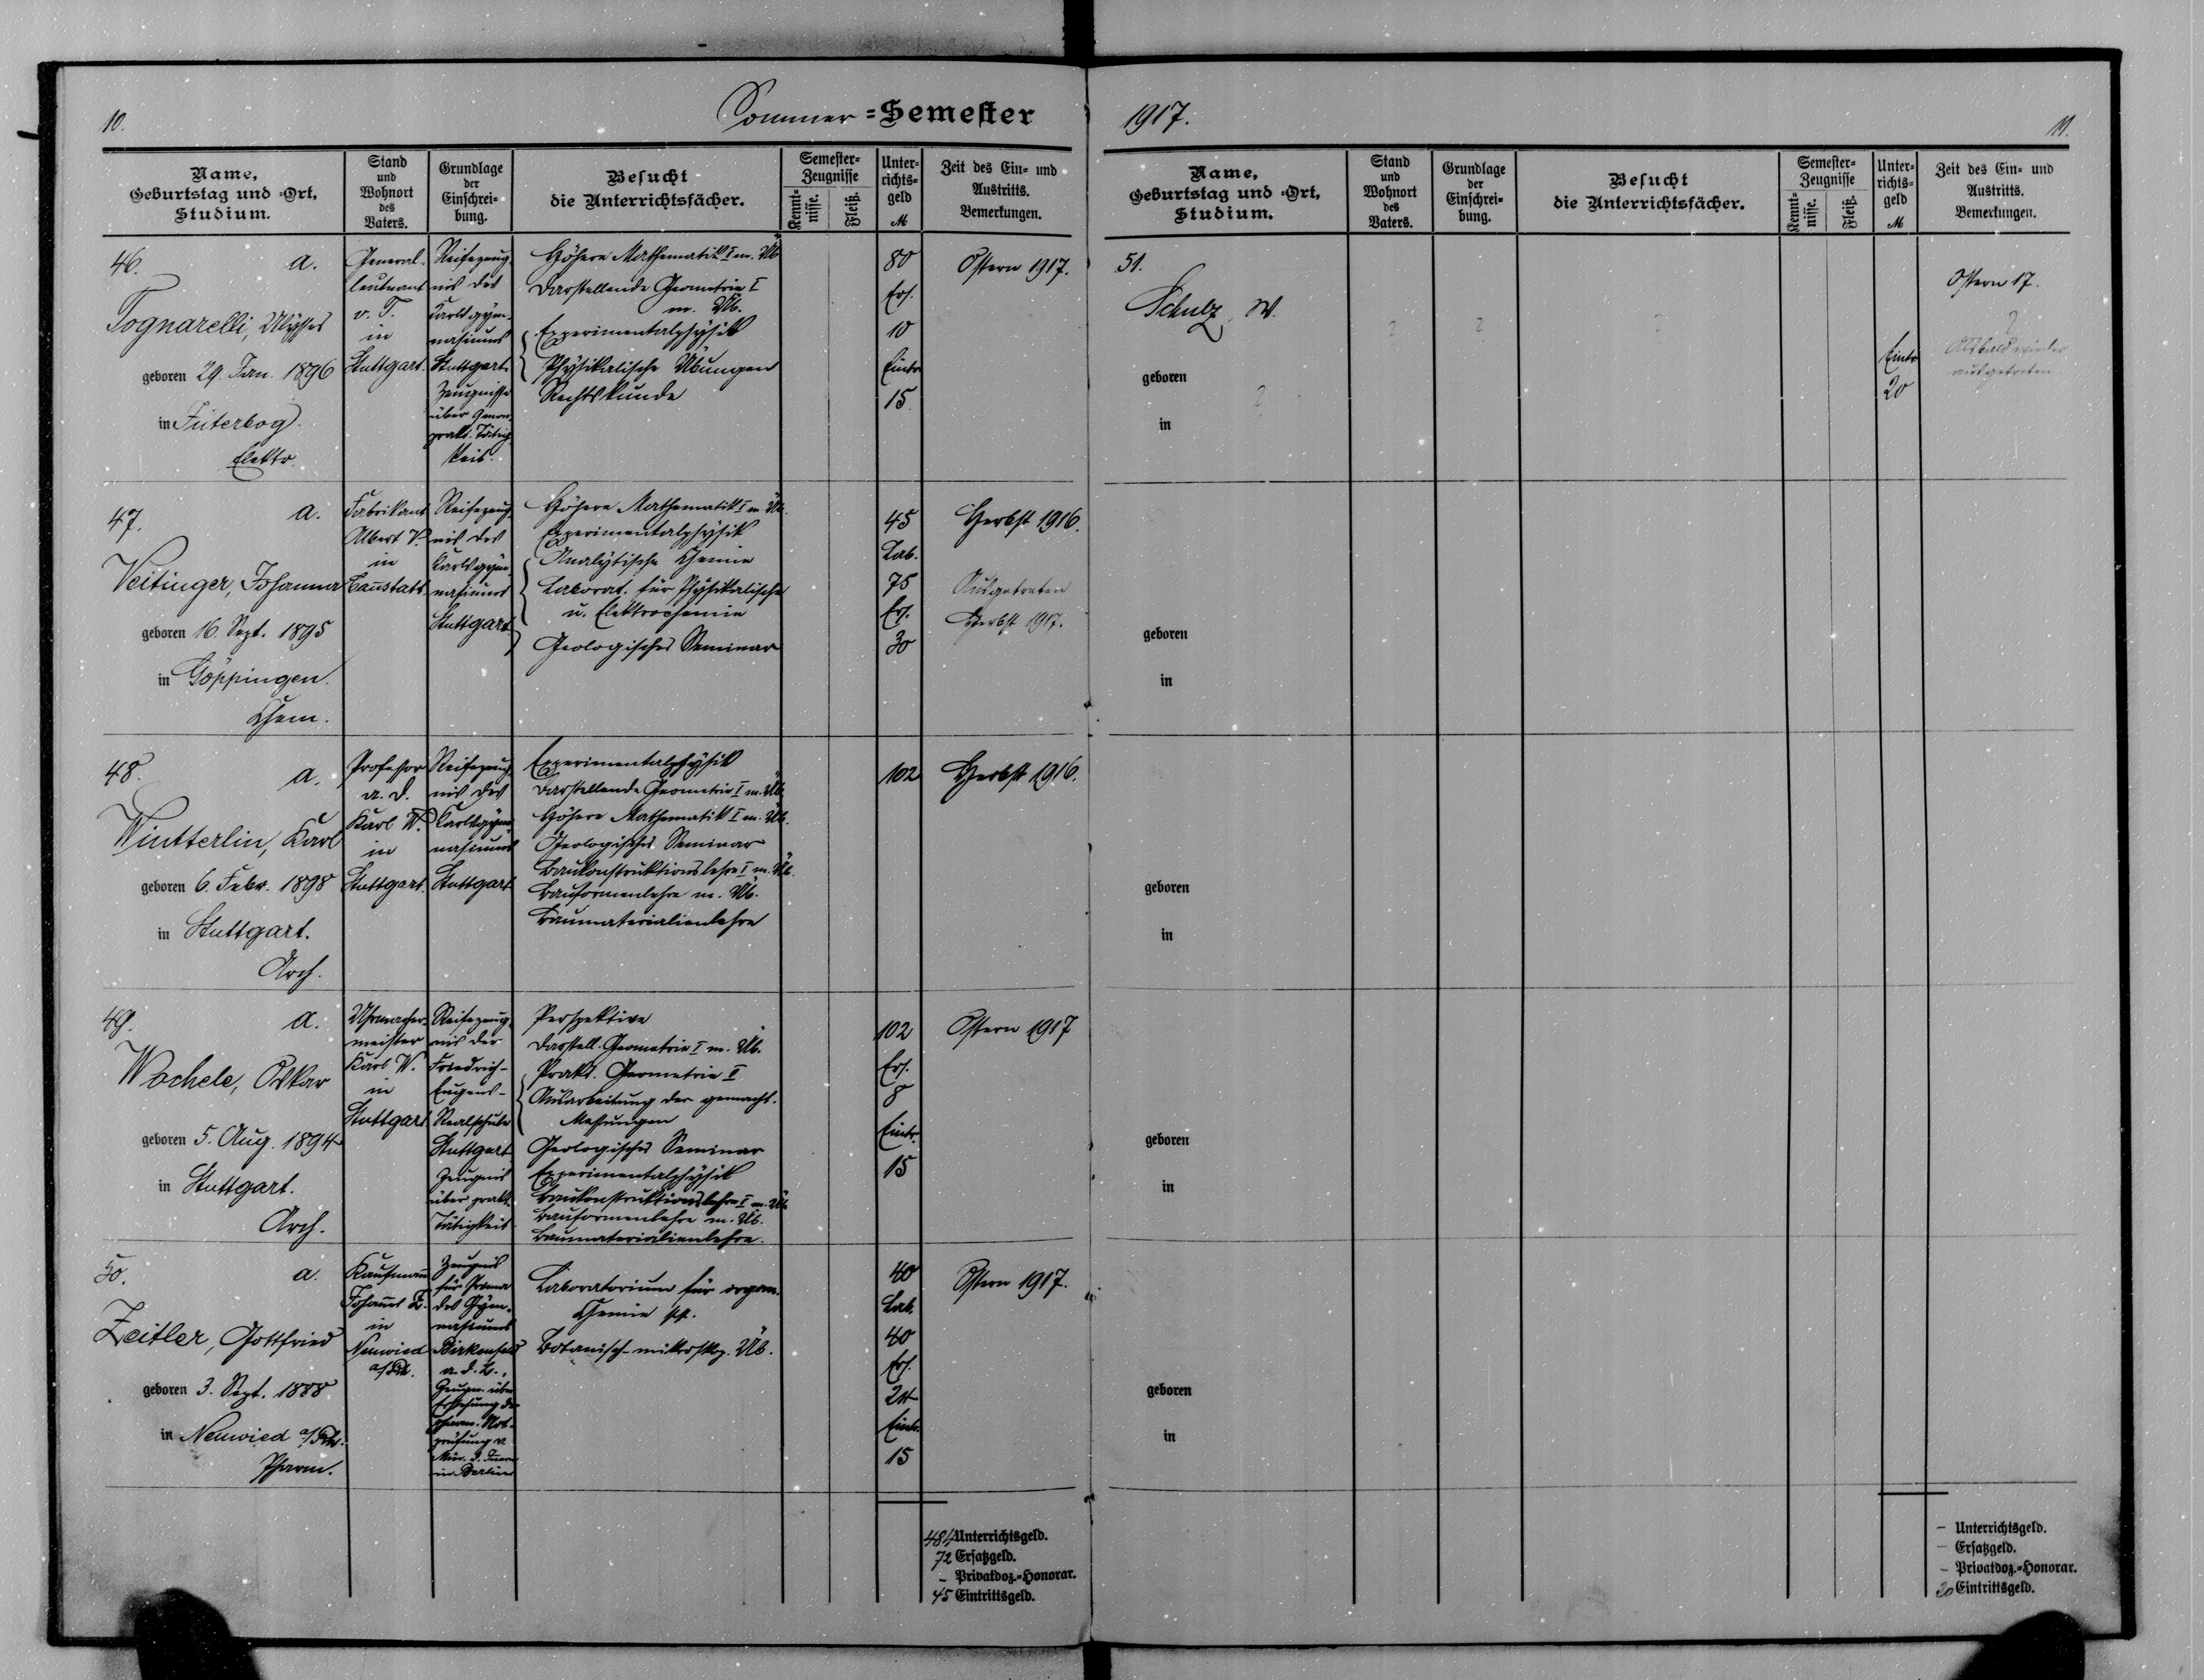 10.
Sommer=Semester
Name,
Geburtstag und =Ort,
Studium.
Stand
und
Wohnort
des
Vaters.
Grundlage
der
Einschrei=
bung.
Besucht
die Unterrichtsfächer.
Semester=
Zeugnisse
Kennt=
nisse.
Fleiß.
Unter=
richts=
geld
M
Zeit des Ein= und
Austritts.
Bemerkungen.
46.
a.
Tognarelli, Ulysses
geboren 29. Jan. 1896
in Jüterbog.
Elektr.
General-
leutnant
v. T.
in
Stuttgart.
Reifezeug-
nis des
Karlsgym-
nasiums
Stuttgart.
Zeugnisse
über
prakt. Tätig-
keit.
Höhere Mathematik I m. Üb.
Darstellende Geometrie I
m. Üb.
Experimentalphysik
Physikalische Übungen
Rechtskunde
80
Ers.
10
Eintr.
15.
Ostern 1917.
47.
a.
Veitinger, Johanna
geboren 16. Sept. 1895
in Göppingen.
Chem.
Fabrikant
Albert V.
in
Canstatt.
Reifezeug-
nis des
Karlsgym-
nasiums
Stuttgart.
Höhere Mathematik I m. Üb.
Experimentalphysik
Analytische Chemie
Laborat. für Physikalische
u. Elektrochemie
Geologisches Seminar
45
Lab.
75
Ers.
30
Herbst 1916.
Ausgetreten
Herbst 1917.
48.
a.
Wintterlin, Karl
geboren 6. Febr. 1898
in Stuttgart.
Arch.
Professor
a. D.
Karl W.
in
Stuttgart.
Reifezeug-
nis des
Karlsgym-
nasiums
Stuttgart
Experimentalphysik
Darstellende Geometrie I m. Üb.
Höhere Mathematik I m. Üb.
Geologisches Seminar
Baukonstruktionslehre I m. Üb.
Bauformenlehre m. Üb.
Baumaterialienlehre
102
Herbst 1916.
49.
a.
Wochele, Oskar
geboren 5. Aug. 1894
in Stuttgart.
Arch.
Uhrmacher-
meister
Karl W.
in
Stuttgart
Reifezeug-
nis der
Friedrich-
Eugens-
Realschule
Stuttgart
Zeugnis
über prakt.
Tätigkeit
Perspektive
Darstell. Geometrie I m. Üb.
Prakt. Geometrie II
Ausarbeitung der gemacht.
Messungen
Geologisches Seminar
Experimentalphysik
Baukonstruktionslehre I m. Üb.
Bauformenlehre m. Üb.
Baumaterialienlehre.
102
Ers.
8
Eintr.
15
Ostern 1917
50.
a.
Zeitler, Gottfried
geboren 3. Sept. 1888
in Neuwied a/Rh.
Pharm.
Kaufmann
Johannes Z.
in
Neuwied
a/Rh.
Zeugnis
für Prima
des Gym-
nasiums
Birkenfeld
Zeugn. über
Erstehung der
pharm. Not-
prüfung v.
in Berlin
Laboratorium für organ.
Chemie
Botanisch-mikroskop. Üb.
40
Lab.
40
Ers.
24
Eintr.
15
Ostern 1917.
484 Unterrichtsgeld.
72 Ersatzgeld.
– Privatdoz.=Honorar.
45 Eintrittsgeld.
1917.
11.
Name,
Geburtstag und =Ort,
Studium.
Stand
und
Wohnort
des
Vaters.
Grundlage
der
Einschrei=
bung.
Besucht
die Unterrichtsfächer.
Semester=
Zeugnisse
Kennt=
nisse.
Fleiß.
Unter=
richts=
geld
M
Zeit des Ein= und
Austritts.
Bemerkungen.
51.
Schulz, W.
geboren
?
in
?
?
?
Eintr.
20
Ostern 17.
?
Alsbald wieder
ausgetreten
geboren
in
geboren
in
geboren
in
geboren
in
– Unterrichtsgeld.
– Ersatzgeld.
– Privatdoz.=Honorar.
20 Eintrittsgeld.